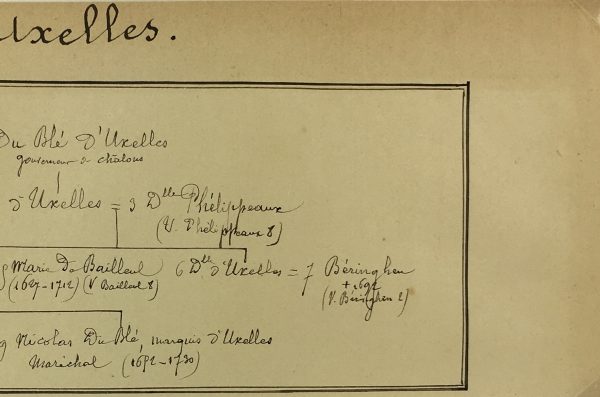 Uxelles.
Du Blé d'Uxelles
gouverneur de châlons
d'Uxelles = 3 Dlle Phélippeaux
(V. Phélippeaux 8)
Marie de Bailleul 6 Dlle d'Uxelles = 7 Béringhen
(1627-1712) (V Bailleul 8) + 1692
(V. Béringhen 2)
9 Nicolas Du Blé, marquis d'Uxelles
Maréchal (1652-1730)